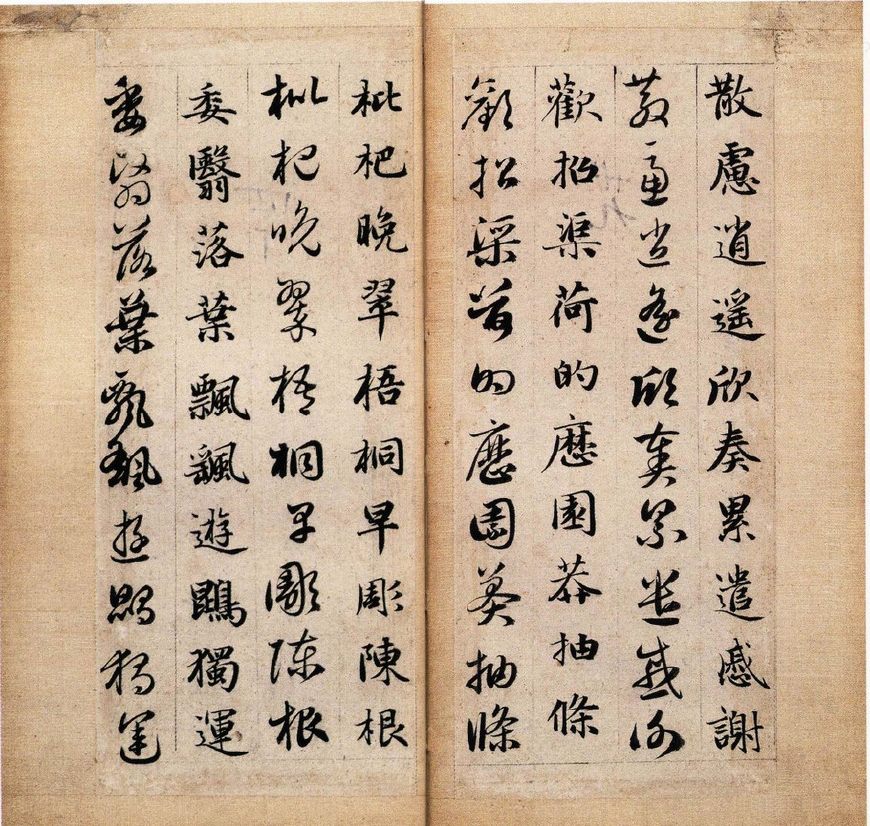 散慮逍遙欣奏累遣慼謝
散慮逍遙欣奏累遣慼謝
歡招渠荷的歷園莽抽條
歡招渠荷的歷園莽抽條
枇杷晚翠梧桐早彫陳根
枇杷晚翠梧桐早彫陳根
委翳落葉飄颻遊鵾獨運
委翳落葉飄颻遊鵾獨運